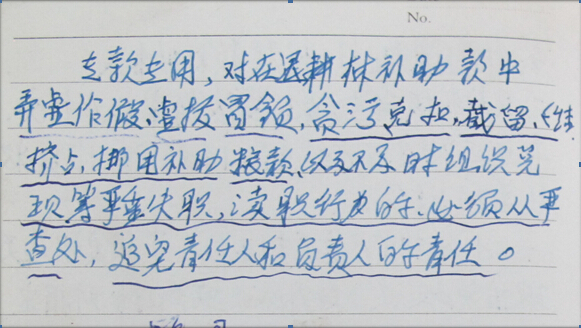 No.
专款专用,对在退耕林补助款中
弄虚作假、虚报冒领,贪污克扣,截留、
挤占、挪用补助粮款,以及不及时组织兑
现等严重失职、渎职行为的、必须从严
查处,追究责任人和负责人的责任。